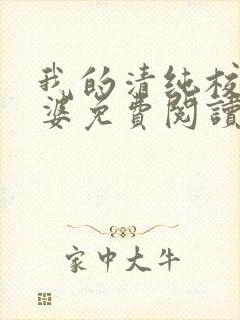 我的清纯校
婆免費閱讀
家中大牛